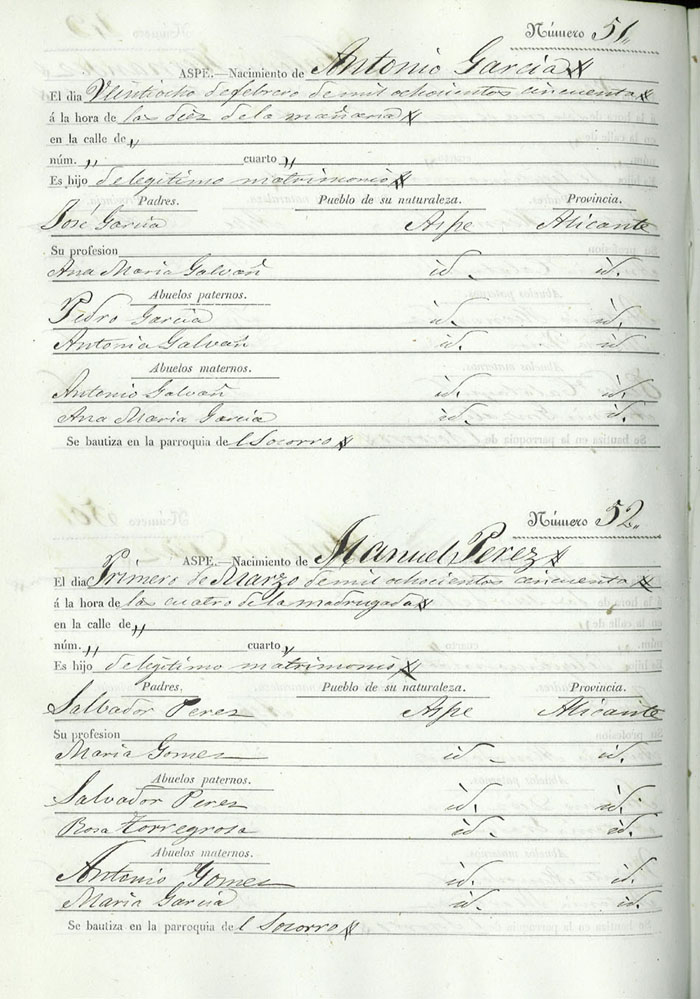 Número 51,,
ASPE.—Nacimiento de Antonio Garcia
El dia Veintiocho de febrero de mil ochocientos cincuenta
á la hora de las diez de la mañana
en la calle de ,,
núm. ,, cuarto ,,
Es hijo de legitimo matrimonio
Padres. Pueblo de su naturaleza. Provincia.
José Garcia Aspe Alicante
Su profesion
Ana Maria Galvañ id. id.
Abuelos paternos.
Pedro Garcia id. id.
Antonia Galvañ id. id
Abuelos maternos.
Antonio Galvañ id. id.
Ana Maria Garcia id. id.
Se bautiza en la parroquia de l Socorro
Número 52,,
ASPE.—Nacimiento de Manuel Perez
El dia Primero de Marzo de mil ochocientos cincuenta
á la hora de las cuatro de la madrugada
en la calle de ,,
núm. ,, cuarto ,,
Es hijo de legitimo matrimonio
Padres. Pueblo de su naturaleza. Provincia.
Salvador Perez Aspe Alicante
Su profesion
Maria Gomez id id.
Abuelos paternos.
Salvador Perez id. id.
Rosa Torregrosa id. id.
Abuelos maternos.
Antonio Gomez id. id.
Maria Garcia id. id.
Se bautiza en la parroquia de l Socorro